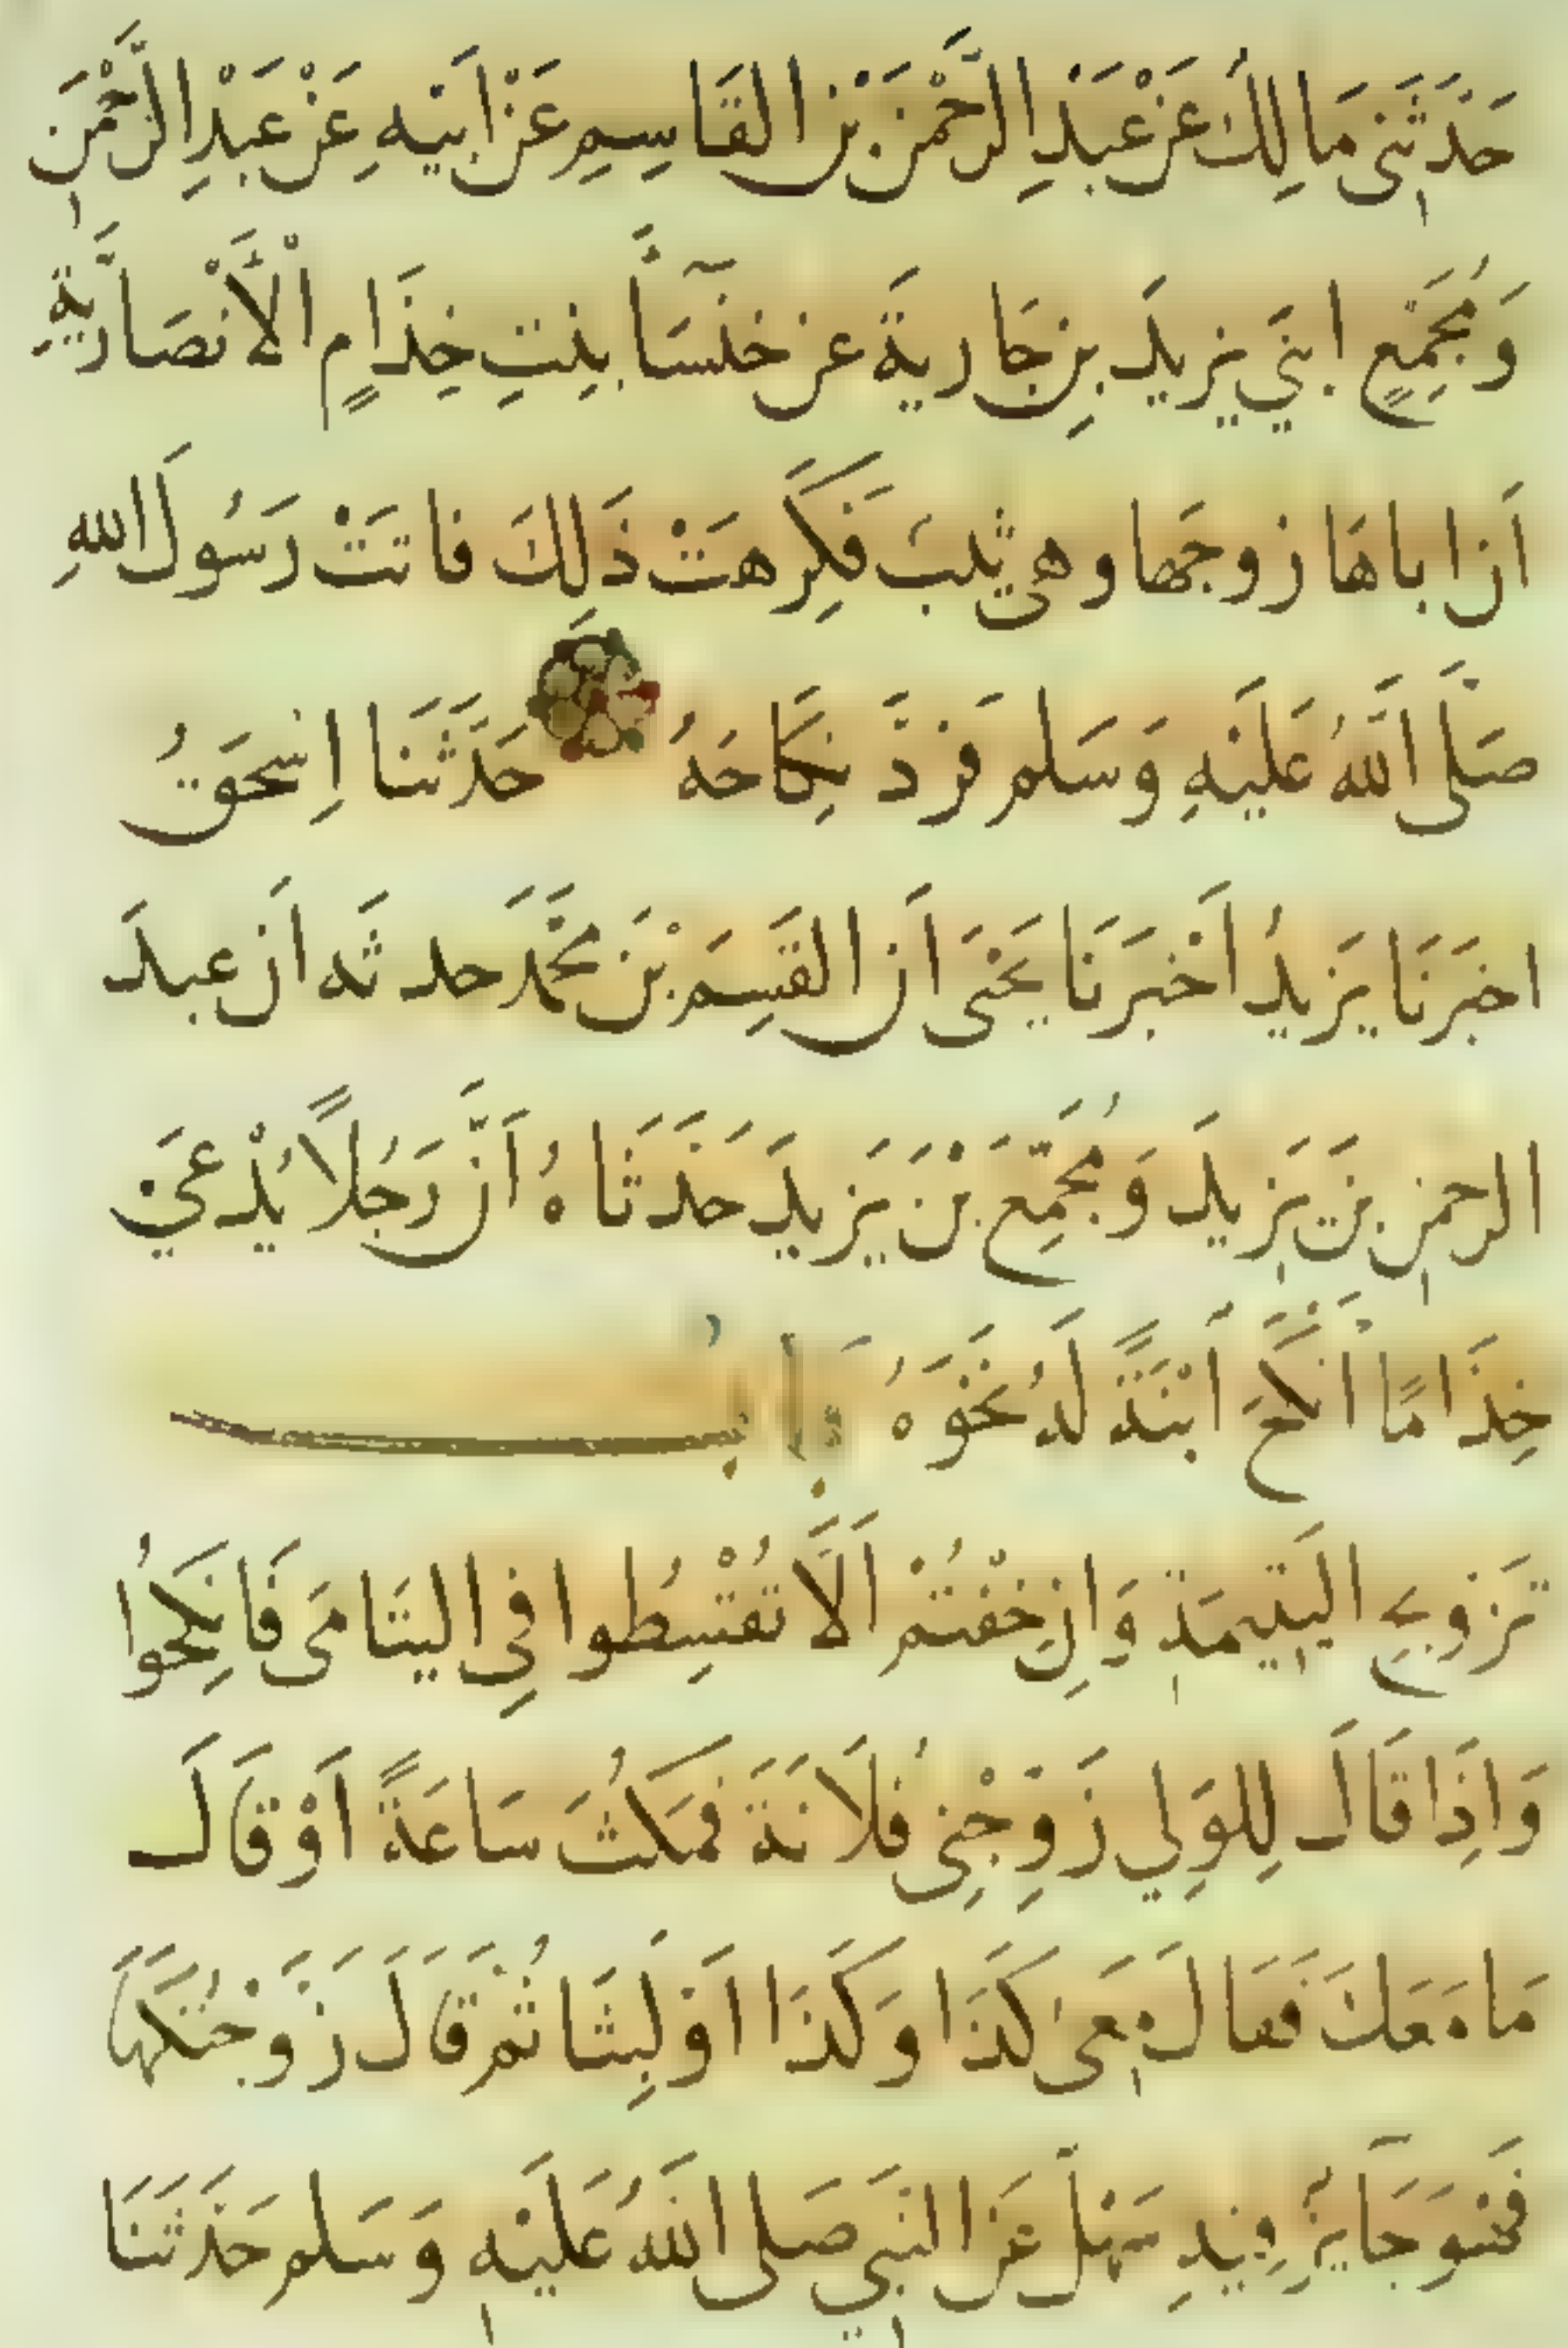 حَدَّثَنِي مَالِكٌ عَنْ عَبْدِ الرَّحْمَنِ بْنِ القَاسِمِ عَنْ اَبِيْهِ عَنْ عَبْدِ الرَّحْمَنِ
وَمُجَمِّعٍ ابنَيْ يزيدَ بنِ جَاريَةَ عن خنْسَآءَ بِنتِ خِذَامٍ الْاَنْصَارِيَّةِ
اَن اباهَا زوجَها وهى ثيبٌ فَكَرِهَتْ ذَلِكَ فاتَتْ رَسُولَ اللهِ
صَلَّى اللهُ عَلَيْهِ وَسَلم فَردَّ نِكَاحَهُ حَدَّثَنَا اِسْحَقُ
اخبَرَنَا يَزيدُ اَخْبَرَنَا يَحْيَى اَن القَسِمَ بْنَ مُحَمَّد حدثَه اَن عبدَ
الرحمنِ بْنَ يَزِيدَ وَمُجَمِّعَ بْنَ يَزيدَ حَدَّثَاهُ اَنَّ رَجُلًا يُدْعَى
خِذَامًا اَنْكَحَ اَبْنَةً لَهُ نَحْوَهُ بَابُ
تَزْويجِ اليَتِيمَةِ وَاِن خِفْتُمْ اَلَّا تُقْسِطُوا فِى اليَتَامَى فَانكِحُوا
وَاِذَا قَالَ لِلوَلِي زَوِّجْنِى فُلَانَةَ فَمَكُثَ سَاعَةً اَوْ قَالَ
مَا مَعَكَ فَقَالَ مَعِى كَذَا وَكَذَا اَوْ لَبِثَا ثُمَّ قَالَ زَوَّجْتُكَهَا
فَهْوَ جَآيزٌ فِيهِ سَهْلٌ عَنِ النَّبِي صَلى اللهُ عَلَيْهِ وَسَلم حَدَّثَنَا